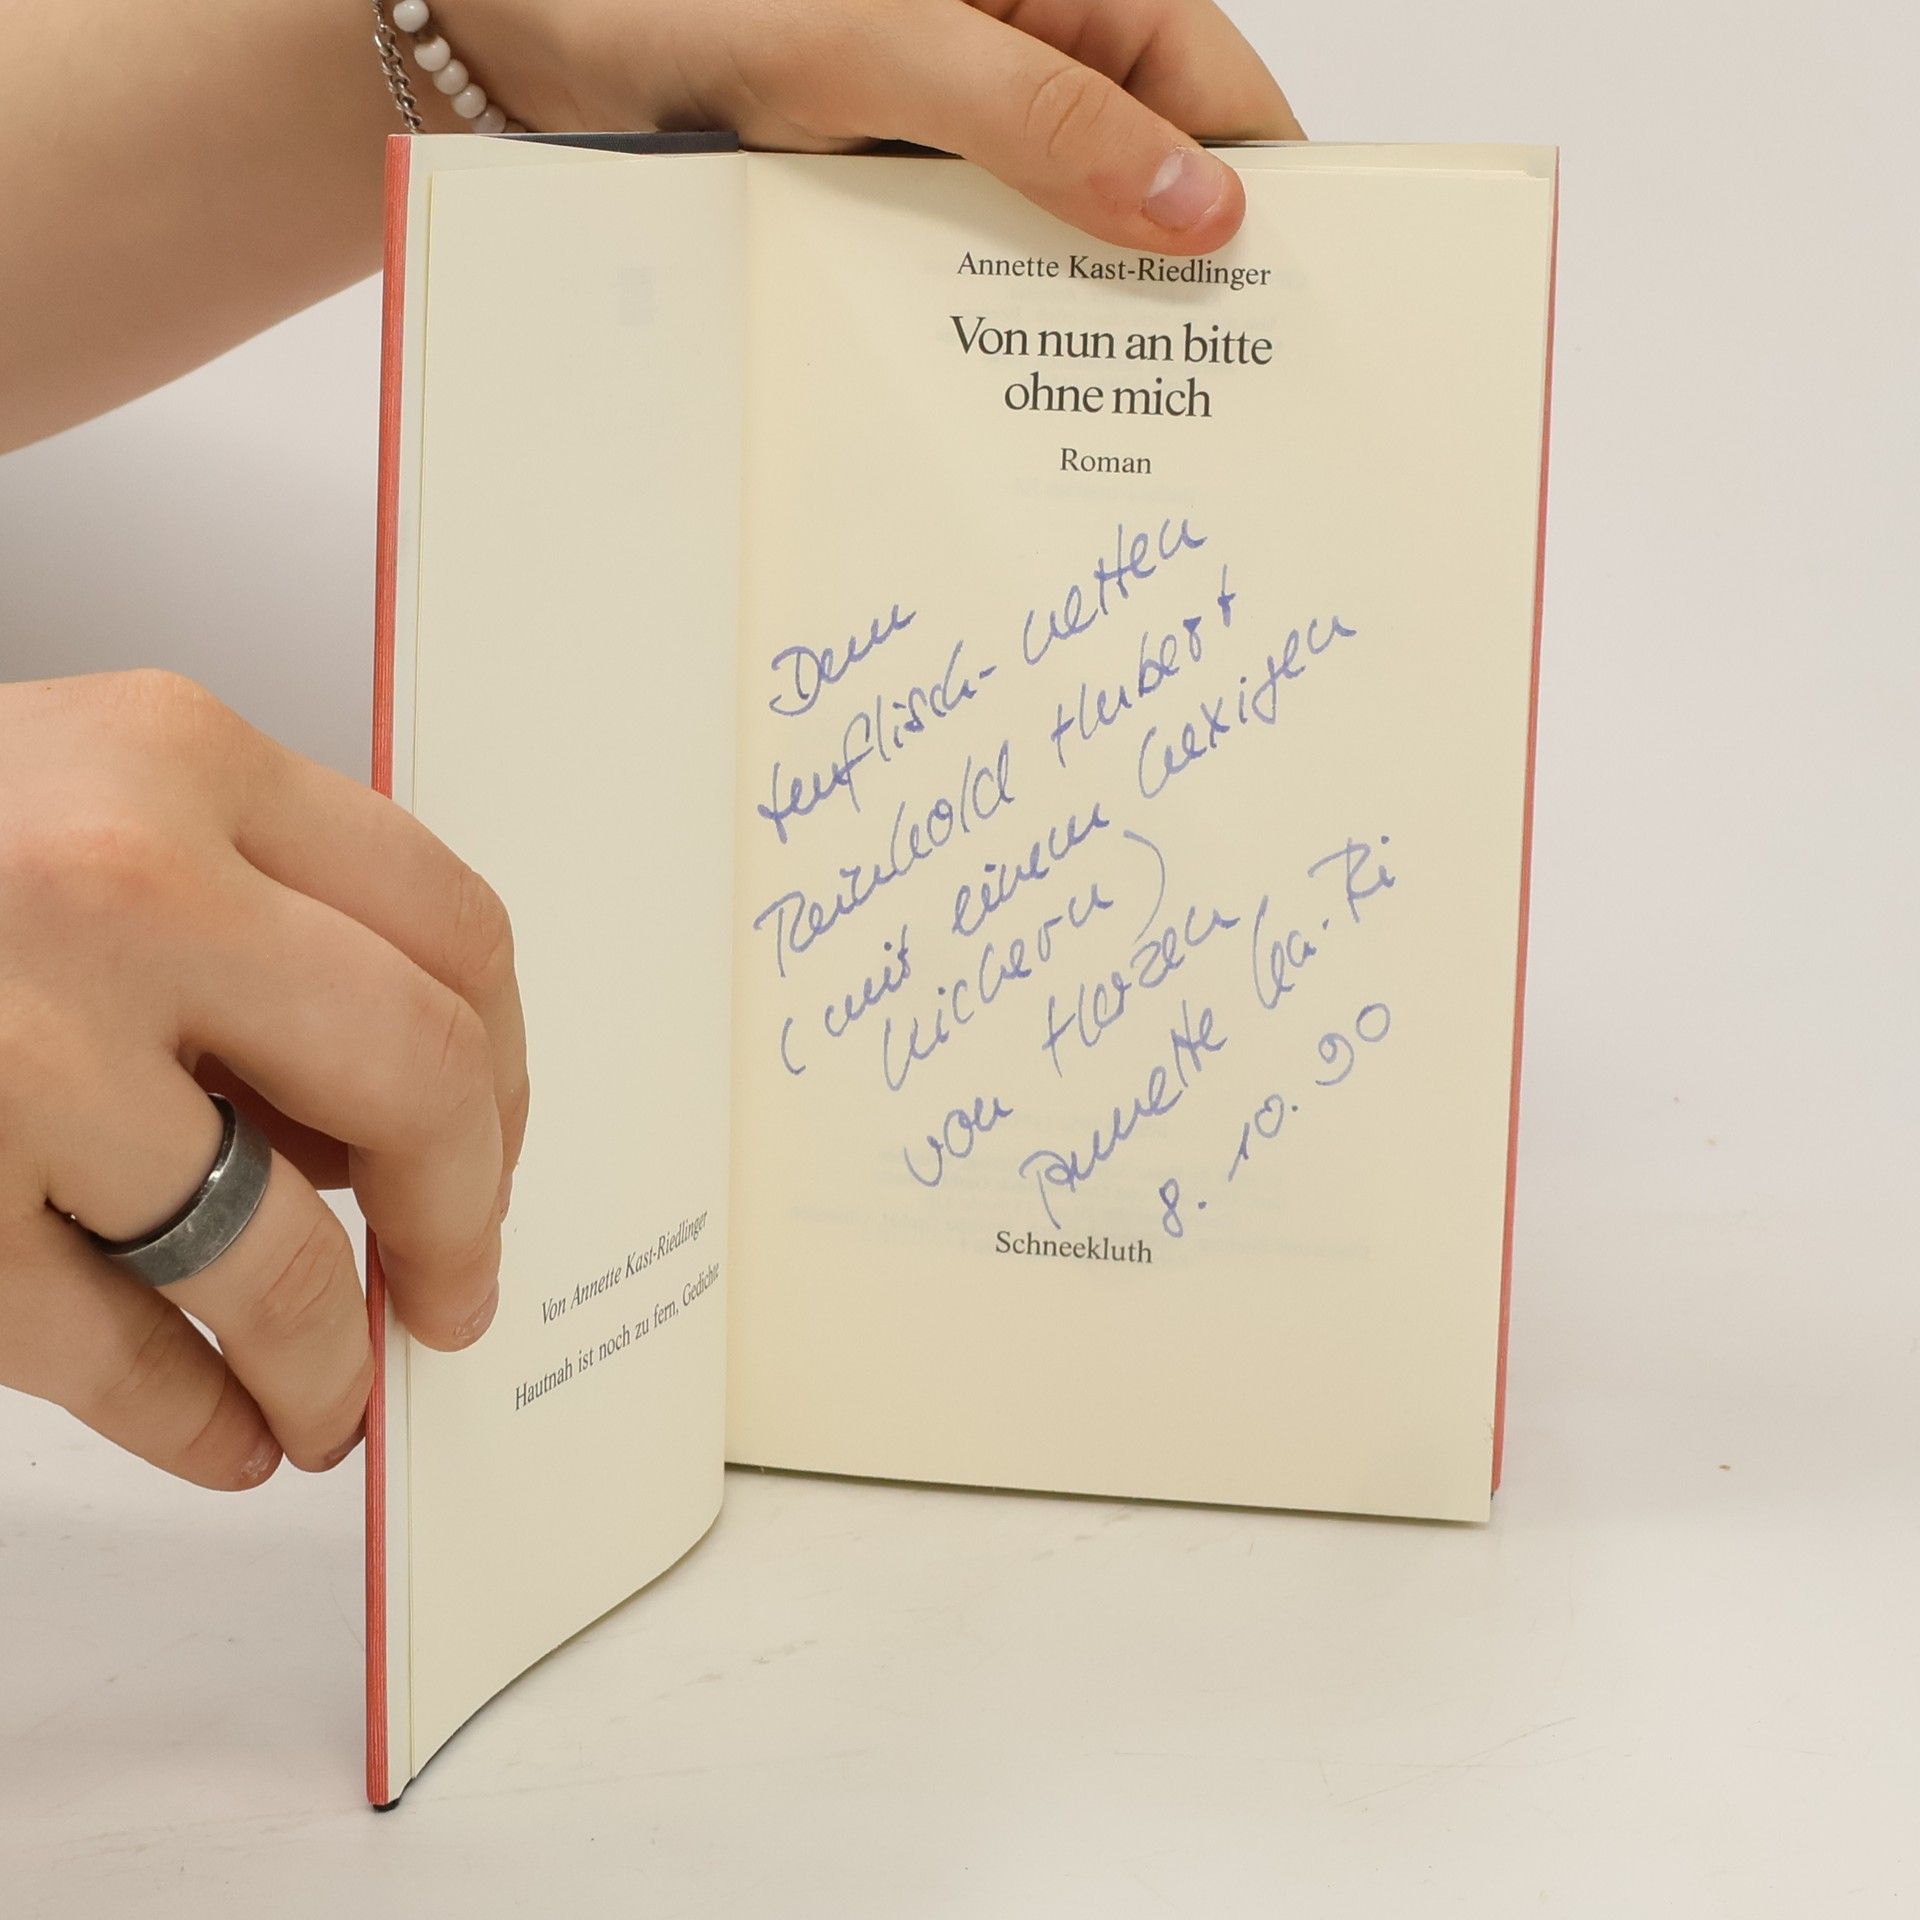 Von Annette Kast-Riedlinger
Hautnah ist noch zu fern, Gedichte
Annette Kast-Riedlinger
Von nun an bitte
ohne mich
Roman
Dem
teuflisch-netten
Reinhold Hubert
(mit einem hexigen
Kichern)
von Herzen
Annette Ka-Ri
8. 10. 90
Schneekluth